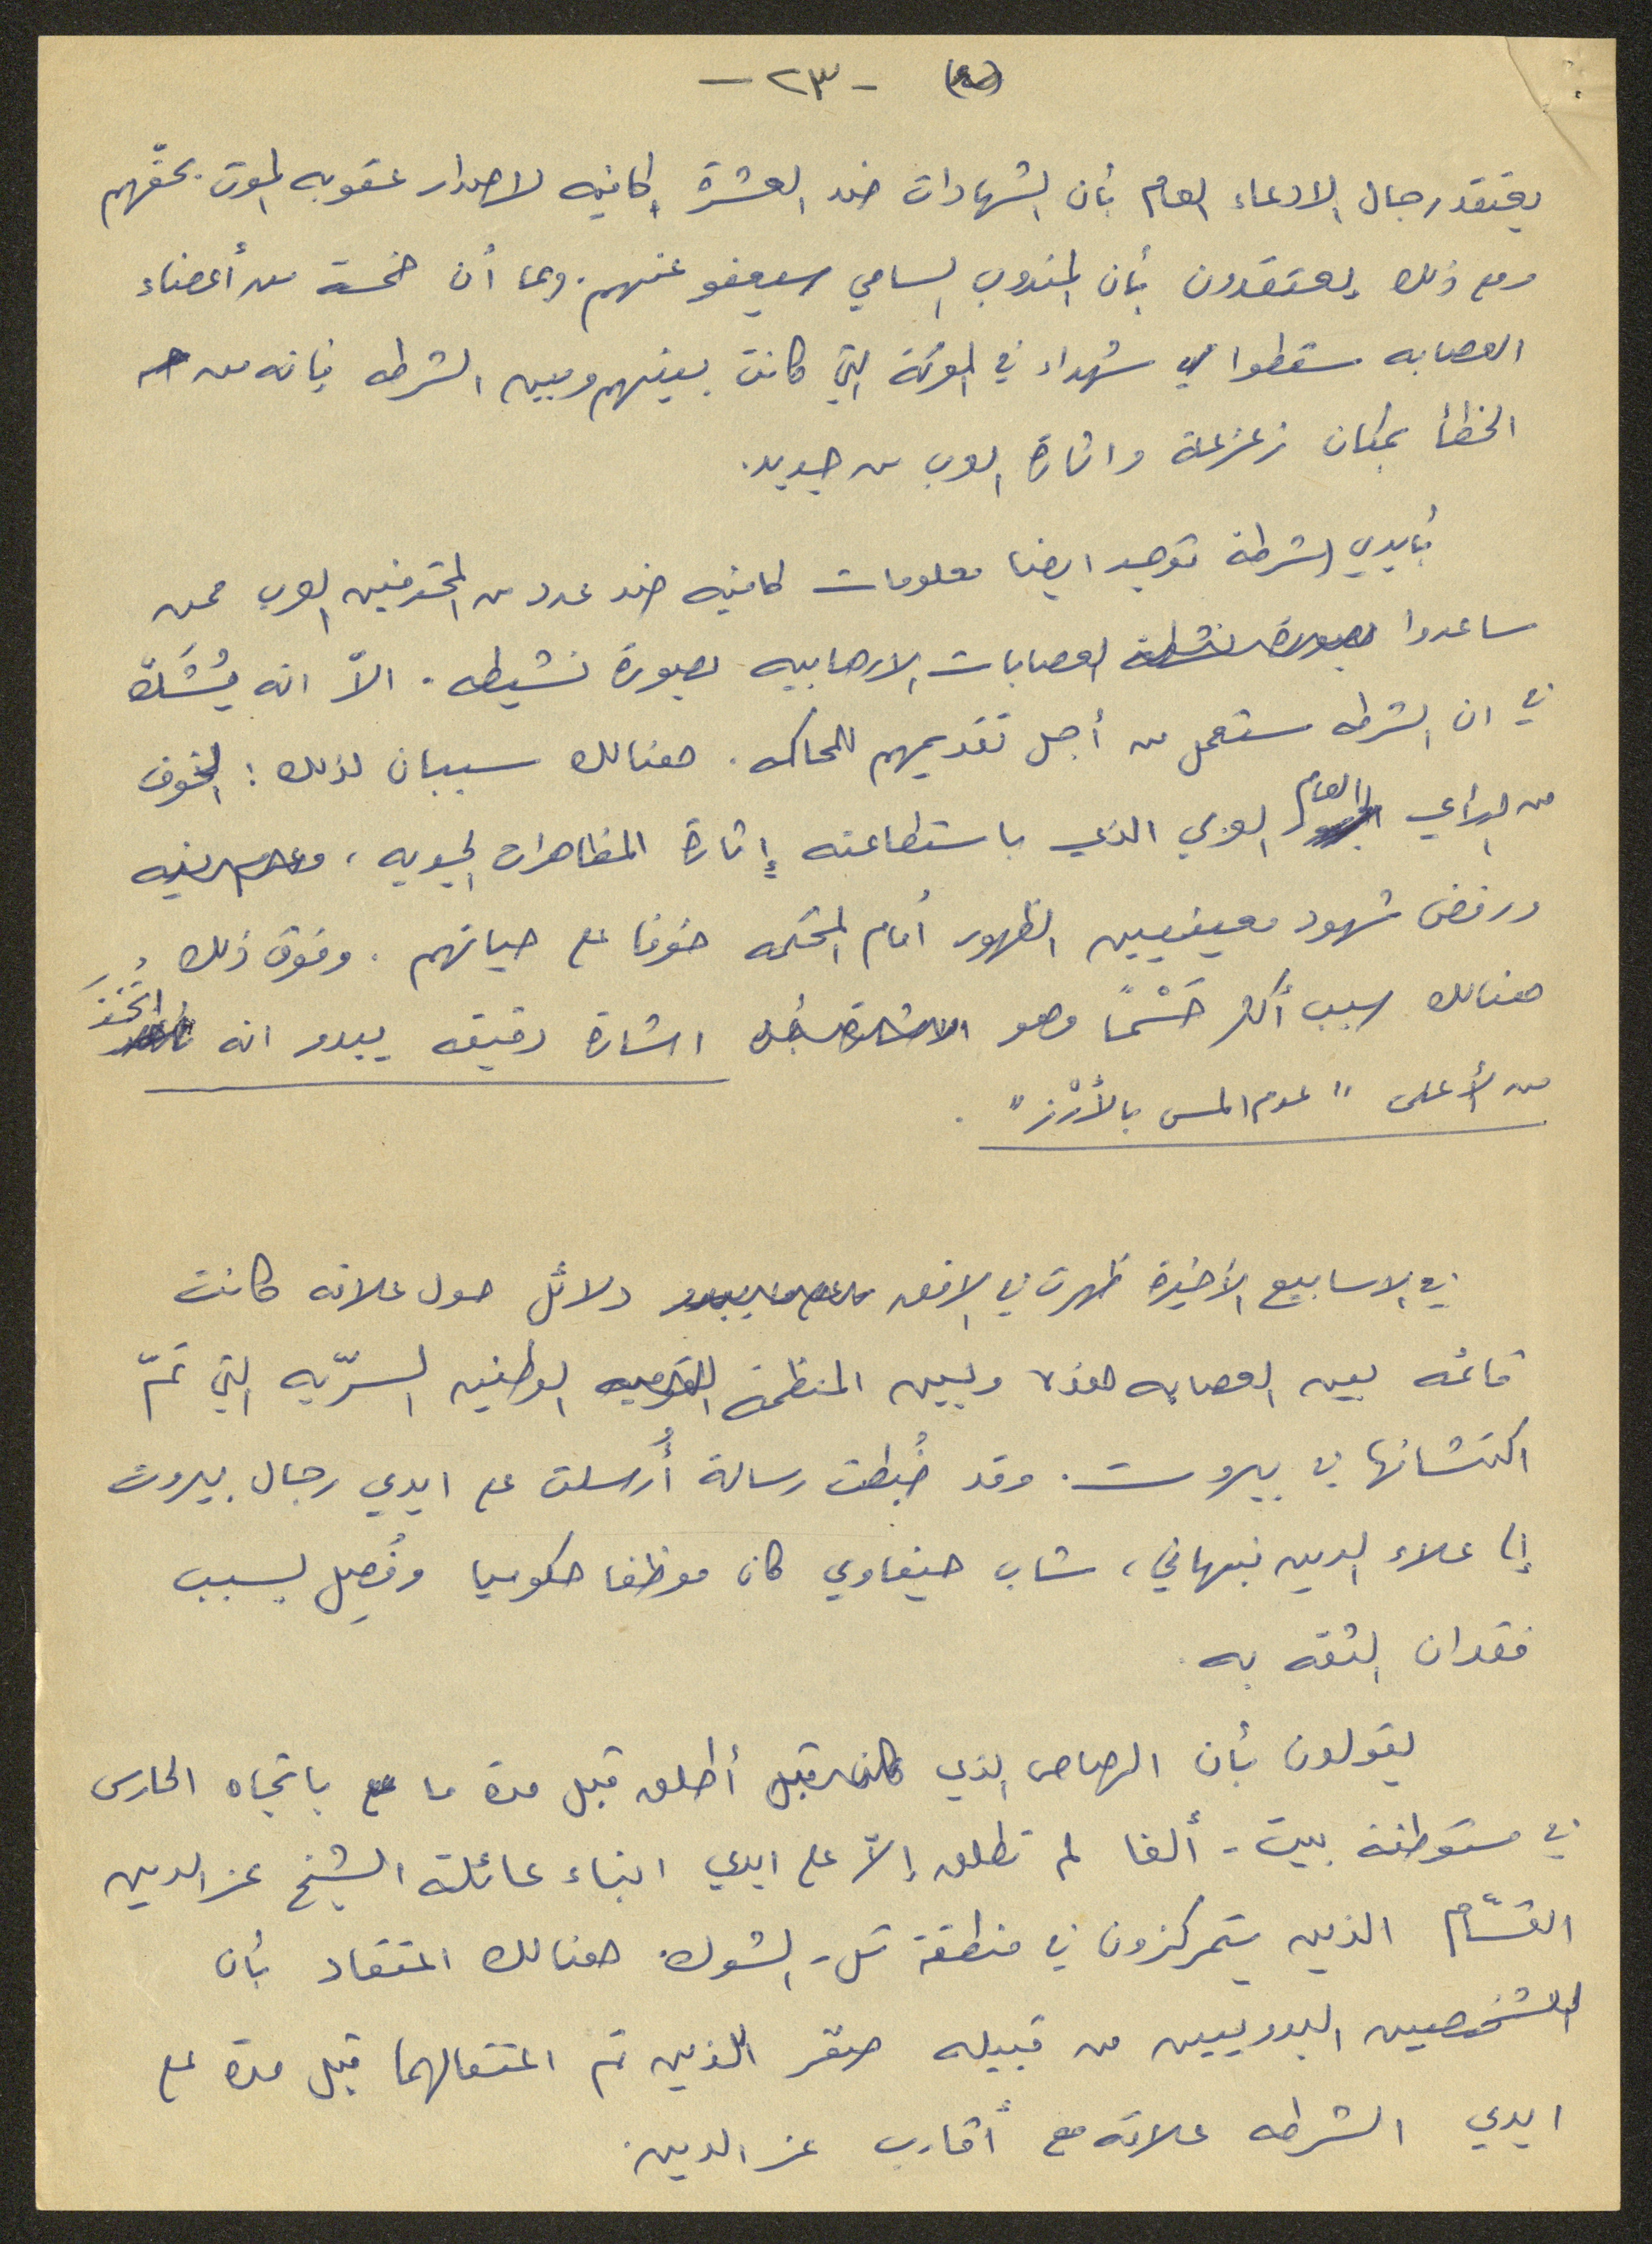 - ٢٣ -
يعتقد رجال الادعاء العام بأن الشهادات ضد العشرة كافيه لاصدار عقوبه الموت بحقّهم
ومع ذلك يعتقدون بأن المندوب السامي سيعفو عنهم. وبما أن خمسة من أعضاء
العصابه سقطوا شهداء في المعركة التي كانت بينهم وبين الشرطه فانه من
الخطأ بمكان زعزعة واثارة العرب من جديد.
بأيدي الشرطة توجد ايضا معلومات كافيه ضد عدد من المحترفين العرب ممن
ساعدوا بصورة نشطة العصابات الارهابيه بصورة نشيطه. الاّ انه يُشَكّ
في ان الشرطه ستعمل من أجل تقديمهم للمحاكمه. هنالك سببان لذلك: الخوف
من الرأي العام العربي الذي باستطاعته إثارة المظاهرات الحيويه،
ورفض شهود معينيين الظهور أمام المحكمه خوفا على حياتهم. وفوق ذلك
هنالك سبب أكثر حَسْمًا وهو اشارة دقيقه يبدو انه اتُّخذَ
من الأعلى "عدم المس بالأرْز".
في الاسابيع الأخيرة ظهرت في الافق دلائل حول علاقه كانت
قائمه بين العصابه هذه وبين المنظمة القوميه الوطنيه السرّيه التي تمّ
اكتشافها في بيروت. وقد ضُبطت رسالة أُرسلت على ايدي رجال بيروت
إلى علاء الدين نبهاني، شاب حيفاوي كان موظفا حكوميا وفُصِل بسبب
فقدان الثقه به.
يقولون بأن الرصاص الذي كان قبل أطلق قبل مدة ما باتجاه الحارس
في مستوطنة بيت - ألفا لم تطلق إلاّ على ايدي ابناء عائلة الشيخ عز الدين
القسّام الذين يتمركزون في منطقة تل - الشوك. هنالك اعتقاد بأن
للشخصين البدويين من قبيله صقر اللذين تم اعتقالهما قبل مدة على
ايدي الشرطه علاقه مع أقارب عز الدين.